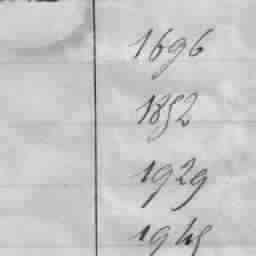 1696
1852
1929
1945